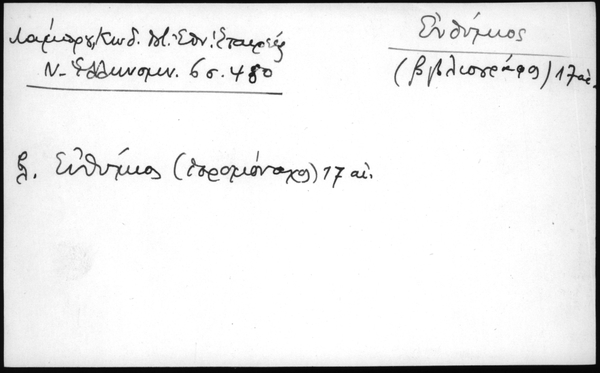 Λάμπρου, Κωδ. Ιστ. Εθν. Εταιρείας
Ν. Ἑλληνομν. 6 σ. 480
Εὐθύμιος
(βιβλιογράφος) 17 αἰ.
βλ. Εὐθύμιος (ἱερομόναχος) 17 αἰ.